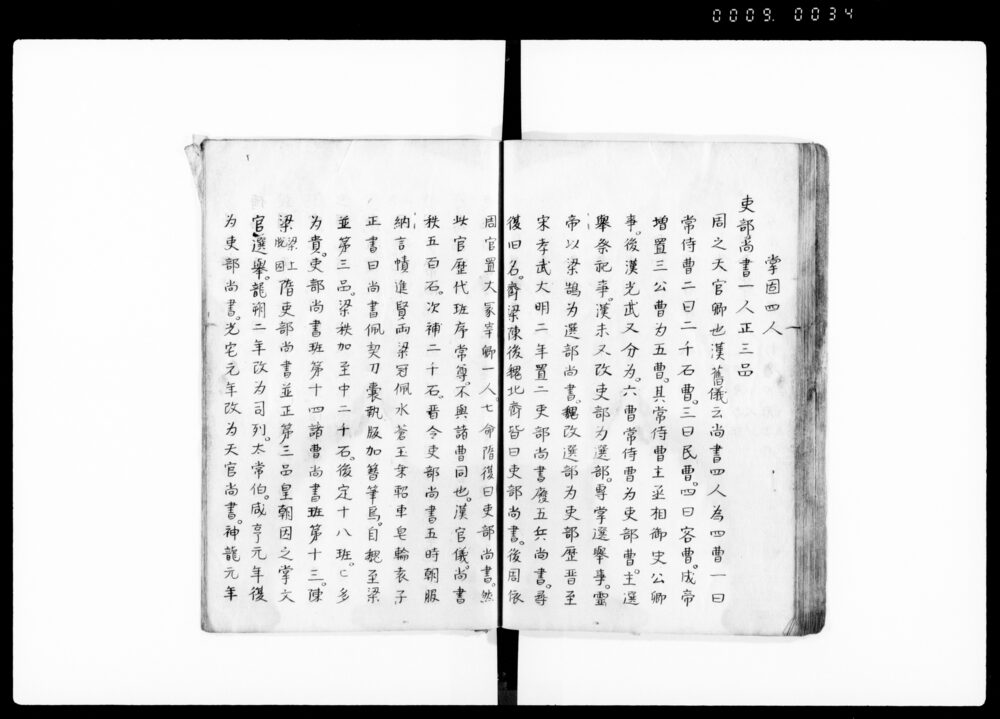 0009. 0034
掌固四人
吏部尚書一人正三品
周之天官卿也漢舊儀云尚書四人為四曹一曰
常侍曹二曰二千石曹。三曰民曹。四曰客曹。成帝
增置三公曹為五曹。其常侍曹主丞相御史公卿
事。後漢光武又分為。六曹常侍曹為吏部曹。主選
舉祭祀事。漢末又改吏部為選部。專掌選舉事。靈
帝以梁鵠為選部尚書。魏改選部為吏部歷晉至
宋孝武大明二年置二吏部尚書廢五兵尚書。尋
復旧名。齊梁陳後魏北齊皆曰吏部尚書。後周依
周官置大冢宰卿一人。七命隋復曰吏部尚書。然
此官歷代班序常尊。不與諸曹同也。漢官儀。尚書
秩五百石。次補二千石。晉令吏部尚書五時朝服
納言幘進賢両梁冠佩水蒼玉乗軺車皂輪袁子
正書曰尚書佩契刀囊執版加簪筆焉。自魏至梁
並第三品。梁秩加至中二千石。後定十八班。乚多
為貴。吏部尚書班第十四諸曹尚書班第十三。陳
梁梁上脫因隋吏部尚書並正第三品皇朝因之掌文
官選舉。龍朔二年改為司列。太常伯。咸亨元年復
為吏部尚書。光宅元年改為天官尚書。神龍元年